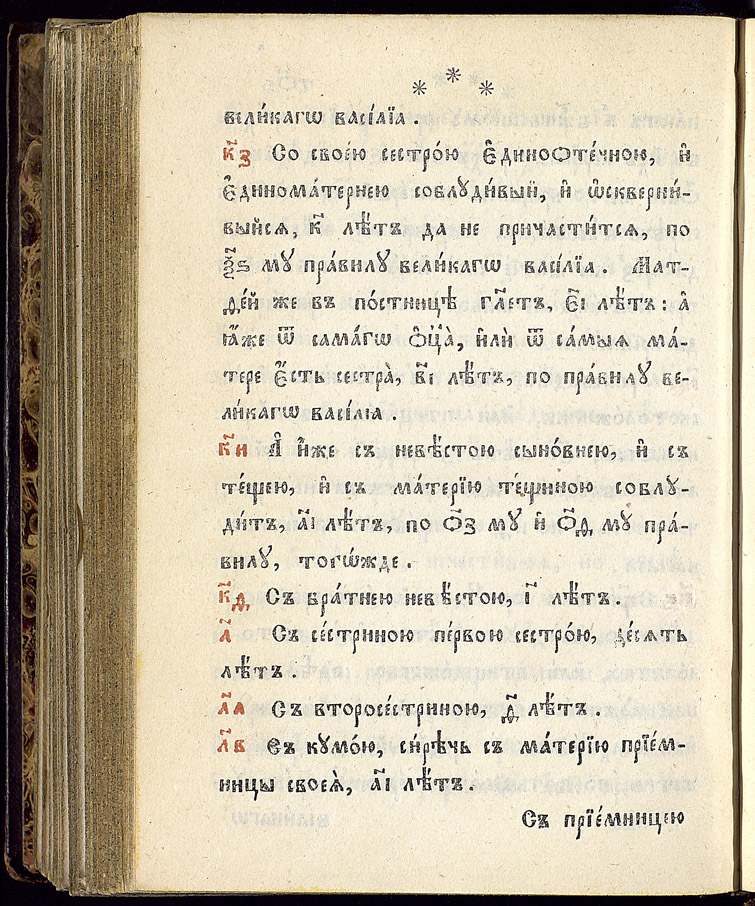 вели́кагѡ васи́лїа .
к҃з Со свое́ю сестро́ю є҆динооте́чною, и҆
є҆динома́тернею соблуди́вый, и҆ ѡ҆скверни́-
выйсѧ, к҃ лѣ́тъ да не причасти́тсѧ, по
ѯ҃ѕ му пра́вилу вели́кагѡ васи́лїа . Мат-
ѳе́й же въ по́стницѣ гл҃етъ, є҃і лѣ́тъ : а҆
ꙗ҆́же ѿ самагѡ ѻ҆ц҃а̀, и҆лѝ ѿ са́мыѧ ма́-
тере є҆́сть сестра̀, в҃і лѣ́тъ, по пра́вилу ве-
ли́кагѡ васи́лїа .
к҃и А҆ и҆́же съ невѣ́стою сыно́внею, и҆ съ
те́щею, и҆ съ ма́терїю те́щиною соблу-
ди́тъ, а҃і лѣ́тъ, по ѻ҃з му и҆ ѻ҃д му пра́-
вилу, тогѡ́жде
к҃д Съ бра́тнею невѣ́стою, і҃ лѣ́тъ .
л҃ Съ се́стриною пе́рвою сестро́ю, де́сѧть
лѣ́тъ .
л҃а Съ второсе́стриною, д҃ лѣ́тъ .
л҃в Съ кумо́ю, си́рѣчь съ ма́терїю прїе́м-
ницы своеѧ̀, а҃і лѣ́тъ .
Съ прїе́мницею